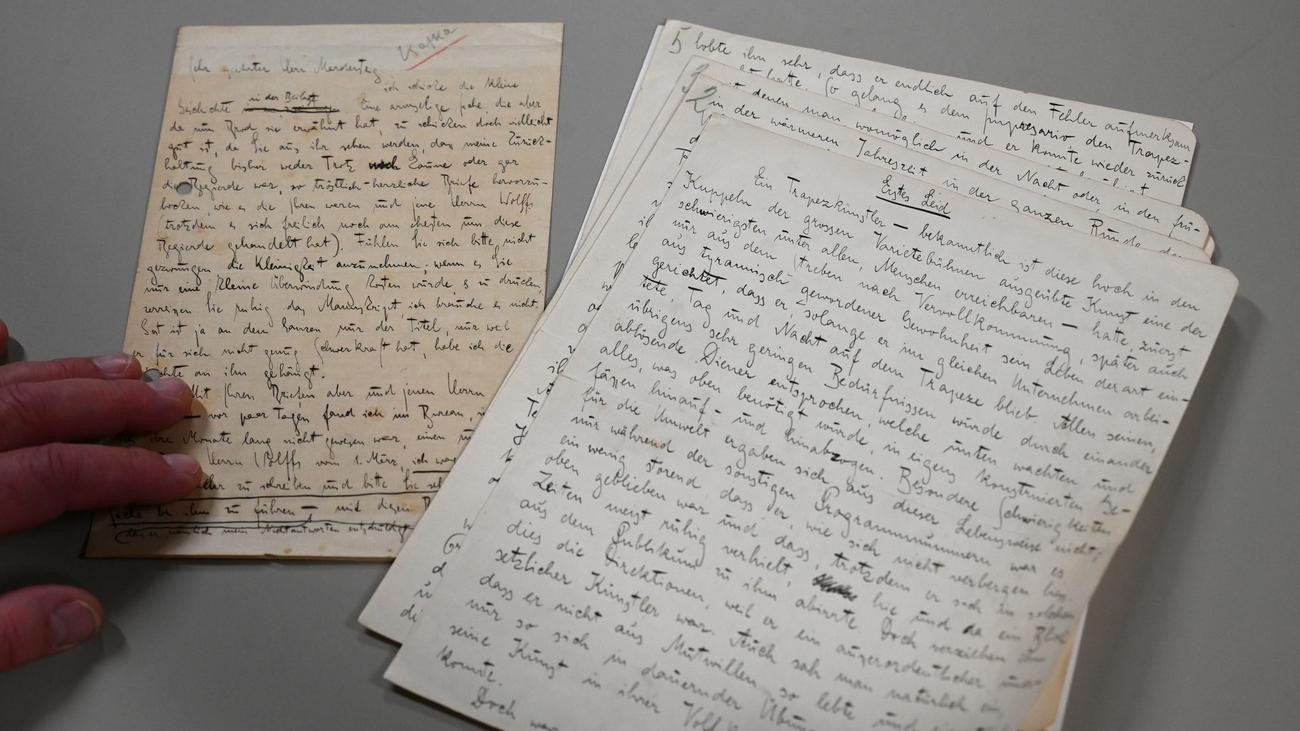 Kafka
Sehr geehrter Herr Mardersteig
ich schicke die kleine
Geschichte in der Beilage. Eine armselige Gabe die aber
da nun Brod sie erwähnt hat, zu schicken doch vielleicht
gut ist, da Sie aus ihr sehen werden, dass meine Zurück-
haltung bisher weder Trotz noch Laune oder gar
die Begierde war, so tröstlich-herzliche Briefe hervorzu-
locken wie es die Ihren waren und jene Herrn Wolffs
(trotzdem es sich freilich noch am ehesten um diese
Begierde gehandelt hat). Fühlen Sie sich bitte nicht
gezwungen die Kleinigkeit anzunehmen; wenn es Sie
nur eine kleine Überwindung kosten würde, es zu drucken,
zerreissen Sie ruhig das Manuskript, ich brauche es nicht.
Gut ist ja an dem Ganzen nur der Titel, nur weil
er für sich nicht genug Schwerkraft hat, habe ich die
an ihn gehängt.
Ihren Briefen aber und jenen Herrn
vor paar Tagen fand ich im Bureau, i
die Monate lang nicht gewesen war, einen
Herrn Wolffs vom 1. März, ich wa
zu schreiben und bitte Sie
bei ihm zu führen – mit diesen
5 lobte ihn sehr, dass er endlich auf den Fehler aufmerksam
hatte. So gelang es dem Impresario, den Trapez-
und er konnte wieder zurück
denen man womöglich in der Nacht oder in den frü-
2 In der wärmeren Jahreszeit in der ganzen Runde der
Erstes Leid
Ein Trapezkünstler – bekanntlich ist diese hoch in den
Kuppeln der grossen Varietebühnen ausgeübte Kunst eine der
schwierigsten unter allen, Menschen erreichbaren – hatte, zuerst
nur aus dem Streben nach Vervollkommnung, später auch
aus tyrannisch gewordener Gewohnheit sein Leben derart ein-
gerichtet, dass er, solange er im gleichen Unternehmen arbei-
tete, Tag und Nacht auf dem Trapeze blieb. Allen seinen,
übrigens sehr geringen Bedürfnissen wurde durch einander
ablösende Diener entsprochen, welche unten wachten und
alles, was oben benötigt wurde, in eigens konstruierten Ge-
fässen hinauf- und hinabzogen. Besondere Schwierigkeiten
für die Umwelt ergaben sich aus dieser Lebensweise nicht;
nur während der sonstigen Programmnummern war es
ein wenig störend, dass er, wie sich nicht verbergen liess,
oben geblieben war und dass, trotzdem er sich in solchen
Zeiten meist ruhig verhielt, hie und da ein Blick
aus dem Publikum zu ihm abirrte. Doch verziehen ihm
dies die Direktionen, weil er ein ausserordentlicher uner-
setzlicher Künstler war. Auch sah man natürlich ein,
dass er nicht aus Mutwillen so lebte und
nur so sich in dauernder Übung
seine Kunst in ihrer Voll
konnte.
Doch war